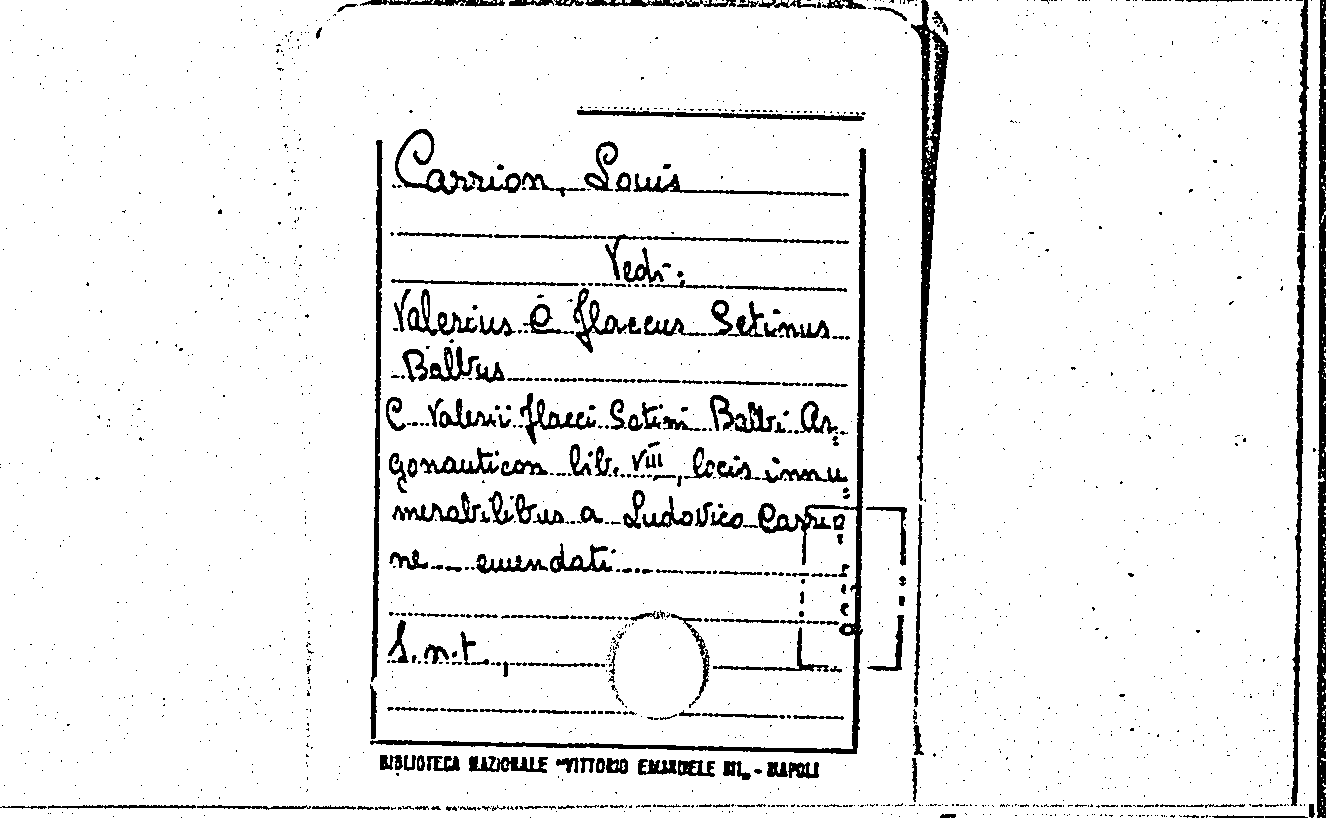 Carrion, Louis
Vedi:
Valerius C Flaccus Setinus
Balbus
C. Valerii Flacci Setini Balbi Ar=
gonauticon lib. VIII, locis innu=
merabilibus a Ludovico Carrio=
ne... emendati...
S.n.t.,
BIBLIOTECA NAZIONALE "VITTORIO EMANUELE III" - NAPOLI